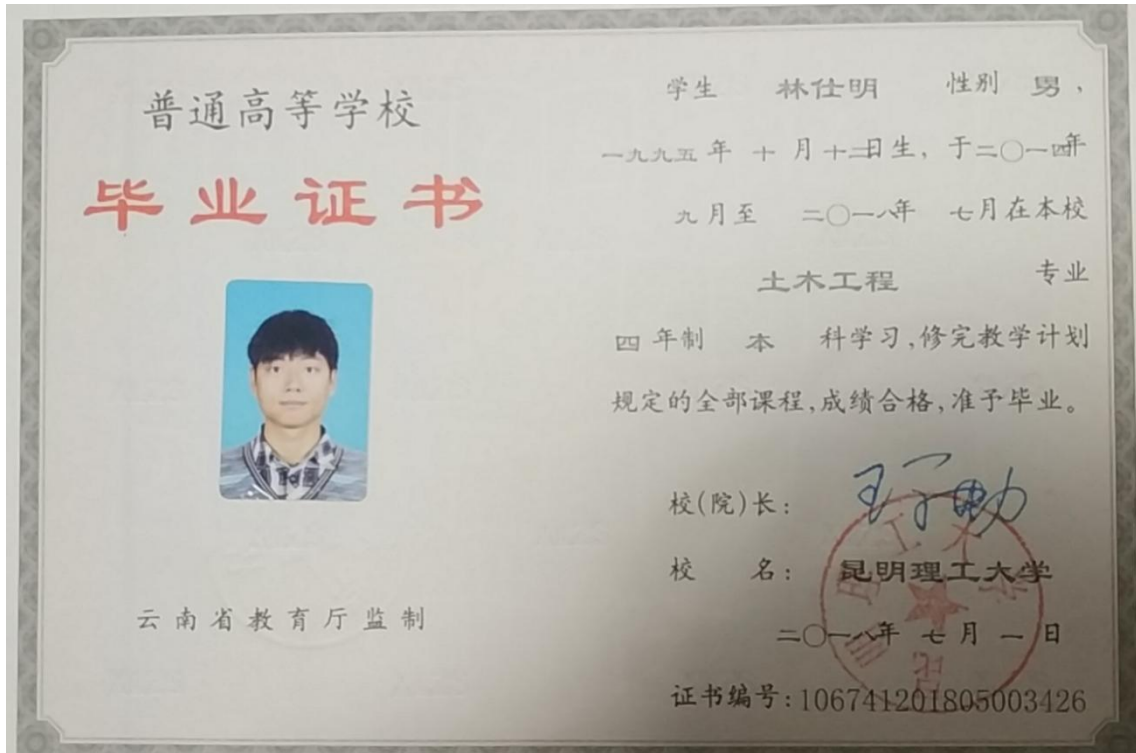 普通高等学校
毕业证书
云南省教育厅监制
学生 林仕明 性别 男，
一九九五年 十月十二日生，于二〇一四年
九月至 二〇一八年 七月在本校
土木工程 专业
四年制 本 科学习，修完教学计划
规定的全部课程，成绩合格，准予毕业。
校(院)长：
校 名：昆明理工大学
二〇一八年 七月 一日
证书编号：106741201805003426